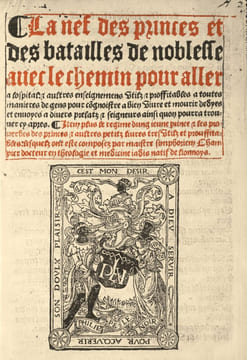 La nef des princes et
des batailles de noblesse
auec le chemin pour aller
a lospital: ⁊ aultres enseignemens vtilz ⁊ prouffitables a toutes
manieres de gens pour cognoistre a bien viure et mourir dediqes
et enuoyes a diuers prelatz ⁊ seigneurs ainsi quon pourra trou-
uer cy apres. Item plus le regime dung ieune prince ⁊ les pro-
uerbes des princes ⁊ aultres petis liures tresvtilz et prouffita-
bles lesquelz ont este composez par maistre simphorien Cham-
pier docteur en theologie et medicine iadis natif de lionnoys
CEST MON DESIR
A DIEU SERVIR
POUR ACQUERIR
SON DOULX PLAISIR
PHILIPES LE NOIR